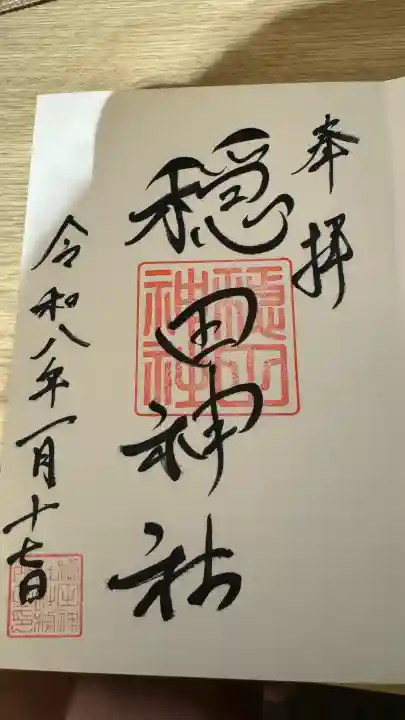 奉拝
穏田神社
令和八年一月十七日
穏田神社